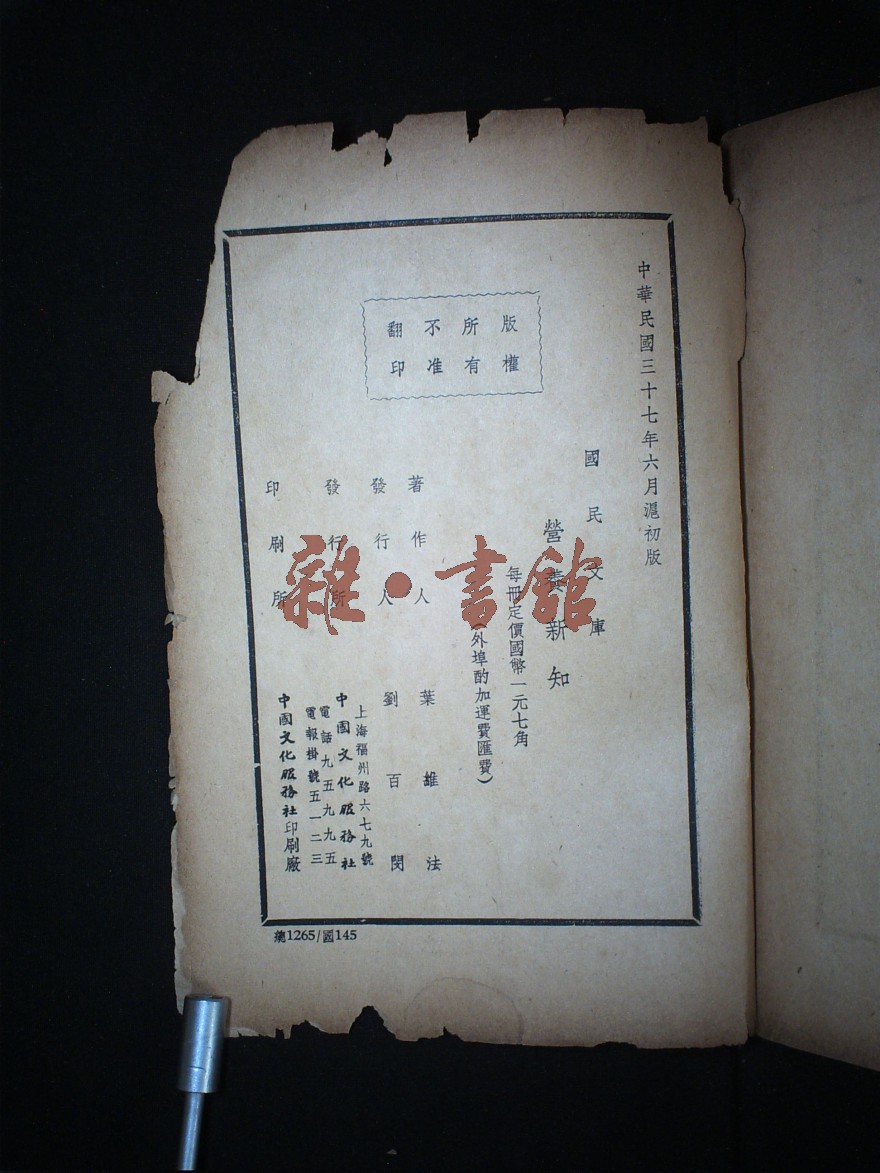 中華民國三十七年六月滬初版
國民文庫
營養新知
每冊定價國幣一元七角
（外埠酌加運費匯費）
版權所有不准翻印
著作人 葉維法
發行人 劉百閔
發行所 中國文化服務社
上海福州路六七九號
電話九五九九五
電報掛號五一二三
印刷所 中國文化服務社印刷廠
總1265/國145
雜·書館